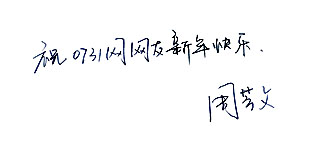 祝0731网网友新年快乐.
周艺文